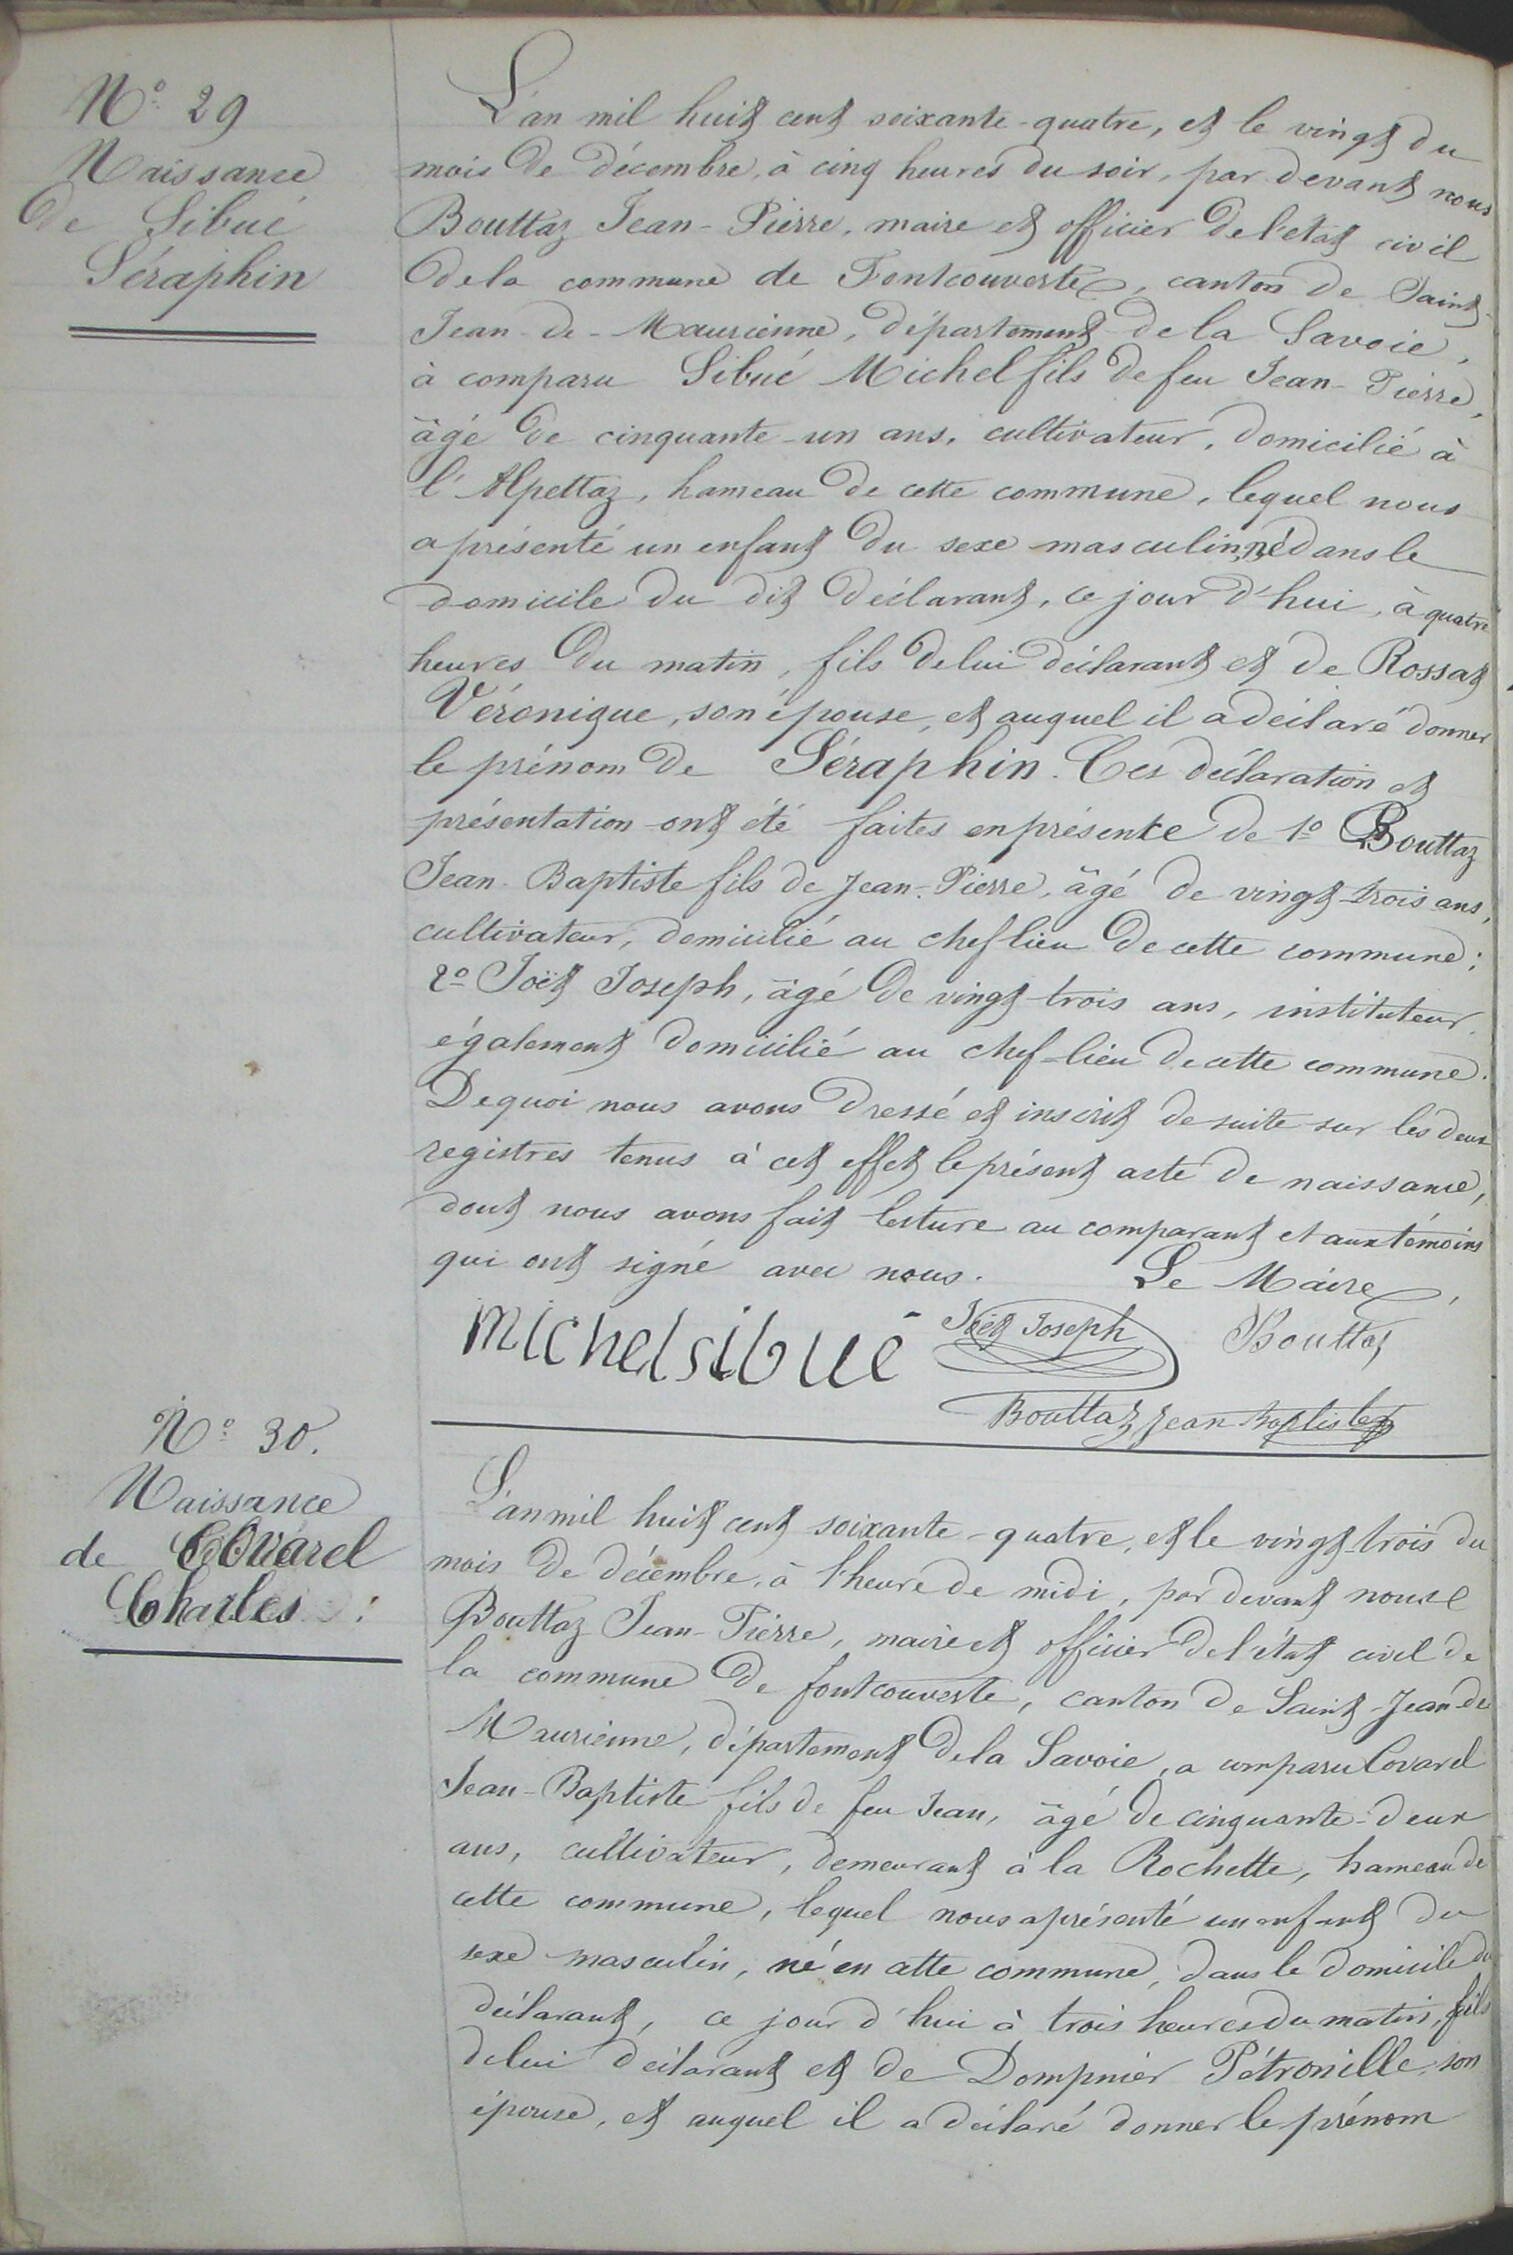 N° 29
Naissance
de Sibué
Séraphin
L'an mil huit cent soixante-quatre, et le vingt du
mois de décembre, à cinq heures du soir, par devant nous
Bouttaz Jean-Pierre, maire et officier de l'état civil
de la commune de Fontcouverte, canton de Saint-
Jean-de-Maurienne, département de la Savoie,
à comparu Sibué Michel fils de feu Jean-Pierre,
âgé de cinquante-un ans, cultivateur, domicilié à
l'Alpettaz, hameau de cette commune, lequel nous
a présenté un enfant du sexe masculin, né dans le
domicile du dit déclarant, ce jour d'hui, à quatre
heures du matin, fils de lui déclarant et de Rossat
Véronique, son épouse, et auquel il a déclaré donner
le prénom de Séraphin. Ces déclaration et
présentation ont été faites en présence de 1° Bouttaz
Jean-Baptiste fils de Jean-Pierre, âgé de vingt-trois ans,
cultivateur, domicilié au chef lieu de cette commune;
2° Joët Joseph, âgé de vingt-trois ans, instituteur,
également domicilié au chef-lieu de cette commune.
De quoi nous avons dressé et inscrit de suite sur les deux
registres tenus à cet effet le présent acte de naissance,
dont nous avons fait lecture au comparant et aux témoins
qui ont signé avec nous. Le Maire,
Michel sibué Joët Joseph Bouttaz
Bouttaz Jean Baptiste
N° 30.
Naissance
de Covarel
Charles
L'an mil huit cent soixante-quatre, et le vingt-trois du
mois de décembre, à l'heure de midi, par devant nous
Bouttaz Jean-Pierre, maire et officier de l'état civil de
la commune de fontcouverte, canton de Saint-Jean-de
Maurienne, département de la Savoie, a comparu Covarel
Jean-Baptiste fils de feu Jean, âgé de cinquante-deux
ans, cultivateur, demeurant à la Rochette, hameau de
cette commune, lequel nous a présenté un enfant du
sexe masculin, né en cette commune, dans le domicile du
déclarant, ce jour d'hui à trois heures du matin, fils
de lui déclarant et de Dompnier Pétronille, son
épouse, et auquel il a déclaré donner le prénom